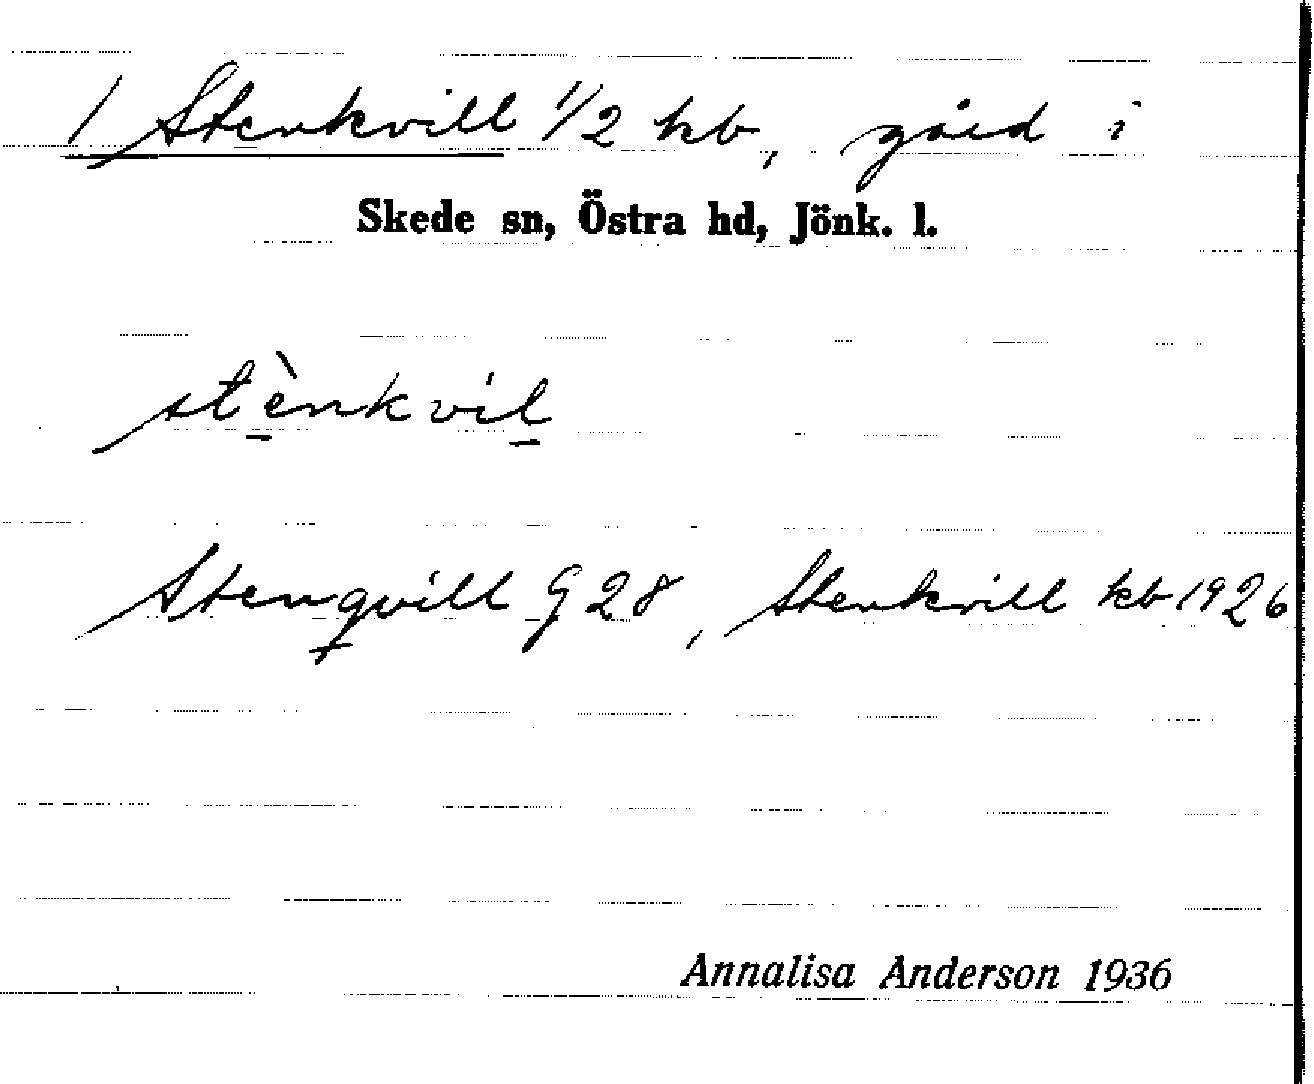 1 Stenkvill 1/2 kb, gård i
Skede sn, Östra hd, Jönk. l.
stènkvil
Stenqvill G 28, Stenkvill kb 1926
Annalisa Anderson 1936